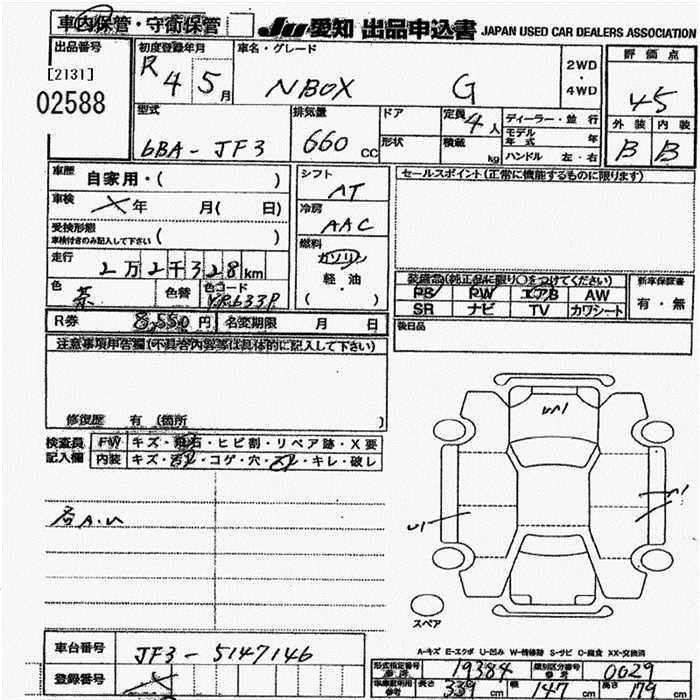 車内保管・守衛保管
JU 愛知 出品申込書 JAPAN USED CAR DEALERS ASSOCIATION
出品番号
[2131]
02588
初度登録年月
R 4 5 月
車名・グレード
NBOX G
2WD
・
4WD
評価点
4.5
外装 内装
B B
型式
6BA-JF3
排気量
660 cc
ドア
形状
定員 4 人
積載 kg
ディーラー・並行
モデル年式 年
ハンドル 左・右
車歴
自家用・( )
車検
年 月( 日)
受検形態
車検付きのみ記入して下さい ( )
走行
2万2千328km
色
茶
色替
色コード
YR633P
シフト
AT
冷房
AAC
燃料
ガソリン
軽・油
( )
セールスポイント(正常に機能するものに限ります)
装備品(純正品に限り○をつけてください)
PS PW エアB AW
SR ナビ TV カワシート
新車保証書
有・無
後日品
R券 8,550円 名変期限 月 日
注意事項申告欄(不具合内容等は具体的に記入して下さい)
修復歴 有 (箇所 )
検査員記入欄
FW キズ・飛石・ヒビ割・リペア跡・X要
内装 キズ・汚れ・コゲ・穴・スレ・キレ・破レ
各A.U
U1
スペア
A-キズ E-エクボ U-凹み W-補修跡 S-サビ C-腐食 XX-交換済
車台番号
JF3-5147146
登録番号
形式指定番号 参考 19384
類別区分番号 参考 0029
車庫証明用 参考 長さ 339 cm 幅 147 cm 高さ 179 cm